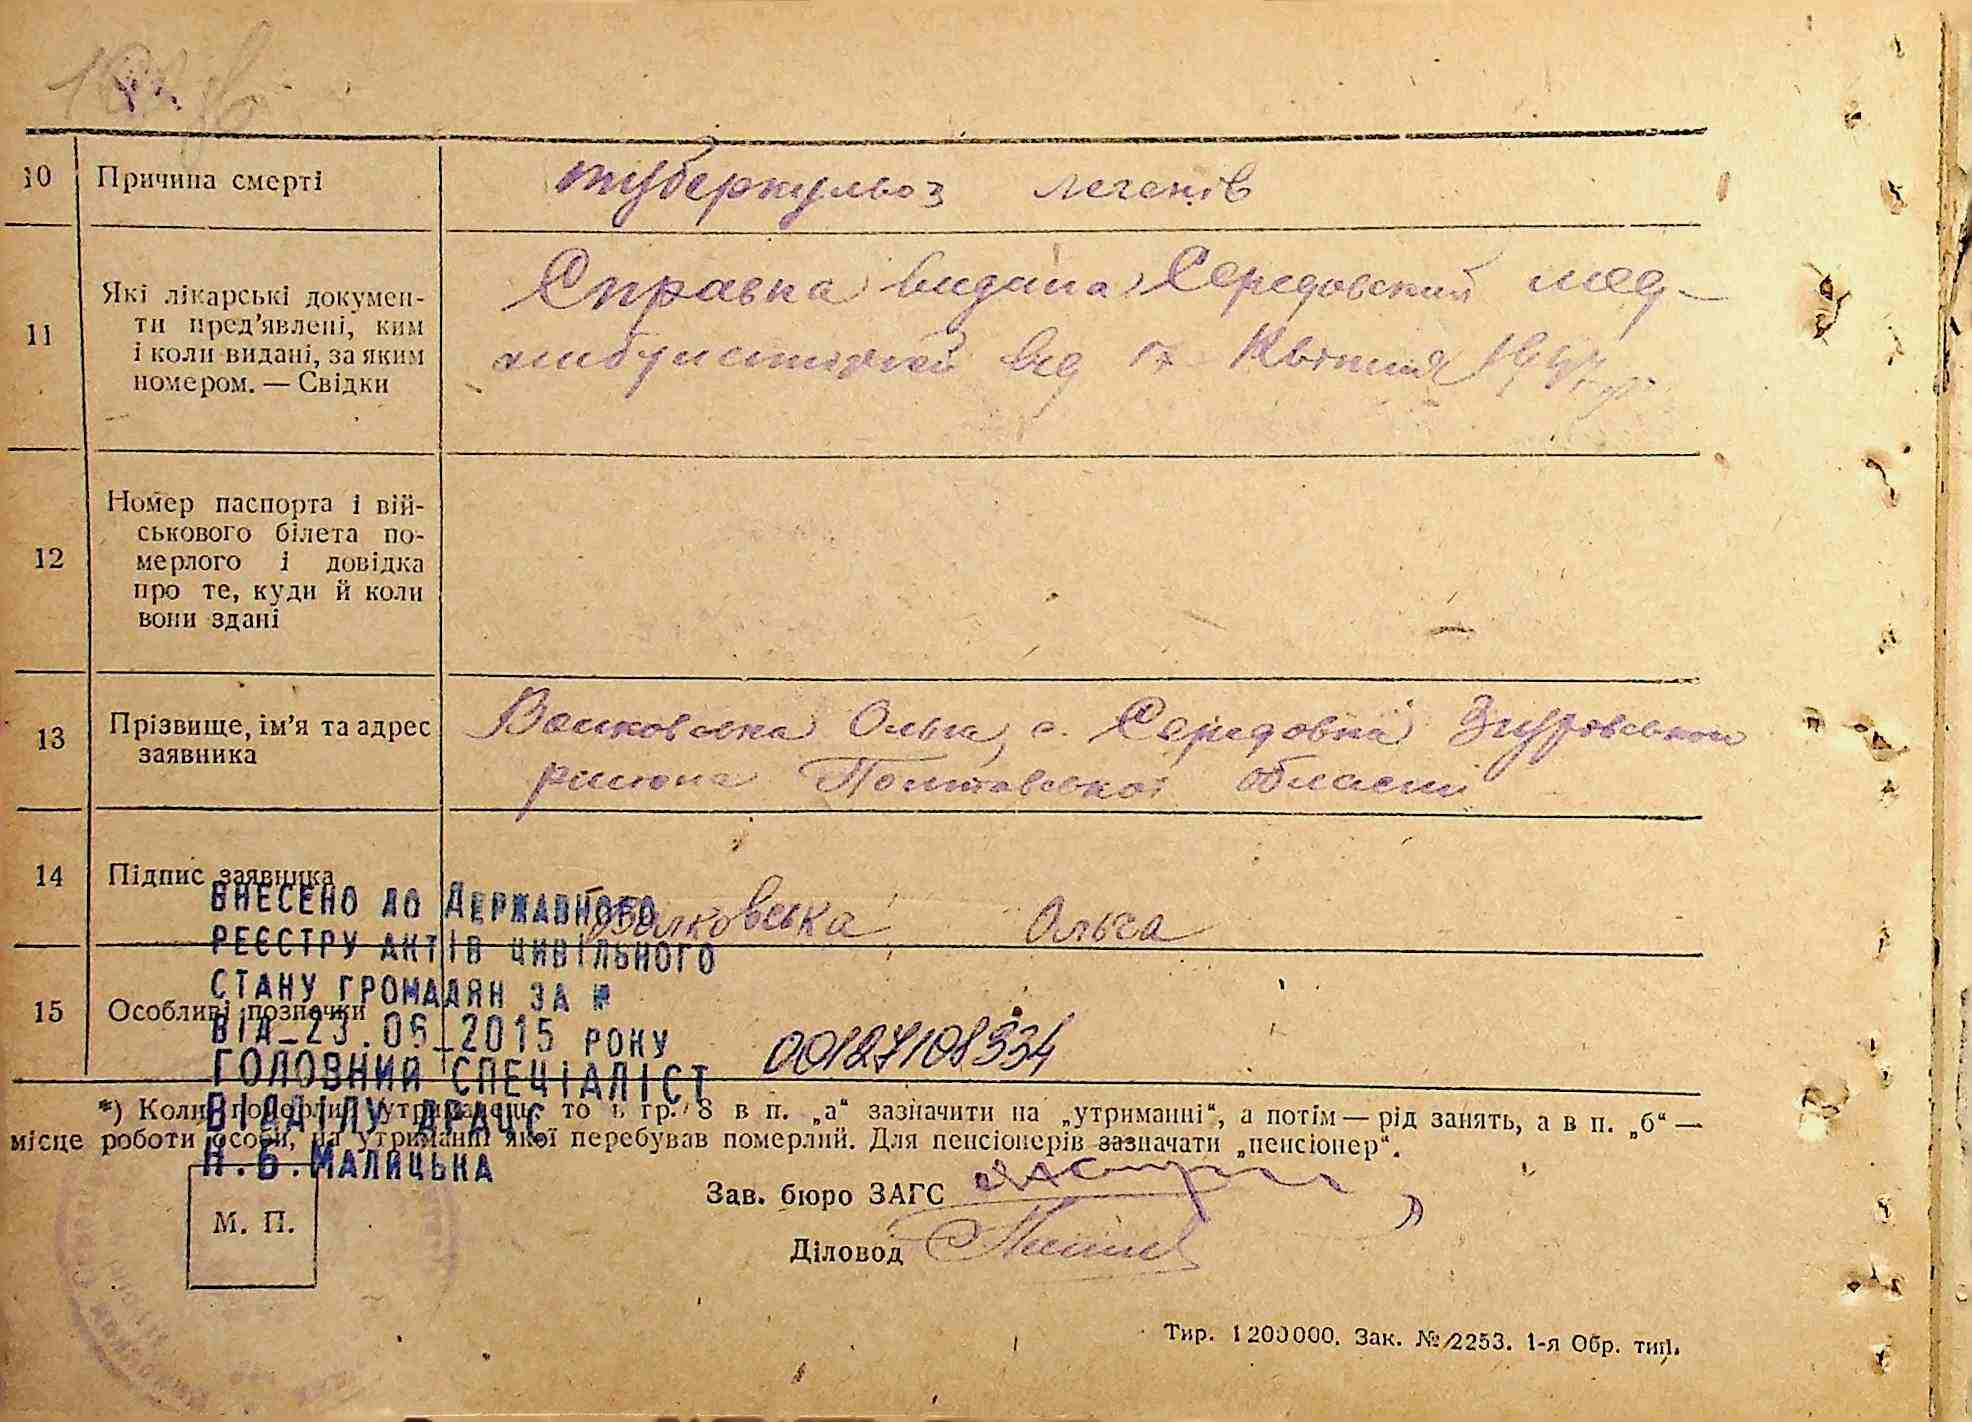 10 Причина смерті туберкульоз легенів
11 Які лікарські докумен-
ти пред'явлені, ким
і коли видані, за яким
номером. — Свідки
Справка видана Середовский мед-
від 17 Квітня
12 Номер паспорта і вій-
ськового білета по-
мерлого і довідка
про те, куди й коли
вони здані
13 Прізвище, ім'я та адрес
заявника
Ольга с. Середовка Згурівської
района Полтавської области
14 Підпис заявника
Ольга
ВНЕСЕНО ДО ДЕРЖАВНОГО
РЕЄСТРУ АКТІВ ЦИВІЛЬНОГО
СТАНУ ГРОМАДЯН ЗА №
15 Особливі позначки
ВІД 23.06.2015 РОКУ
00127108334
ГОЛОВНИЙ СПЕЦІАЛІСТ
ВІДДІЛУ ДРАЦС
Н.Б.МАЛИЦЬКА
*) Коли померлий утриманець, то в гр. 8 в п. „а“ зазначити на „утриманні“, а потім — рід занять, а в п. „б“ —
місце роботи особи, на утриманні якої перебував померлий. Для пенсіонерів зазначати „пенсіонер“.
Зав. бюро ЗАГС
М. П.
Діловод
Тир. 1200000. Зак. № 2253. 1-я Обр. тип.